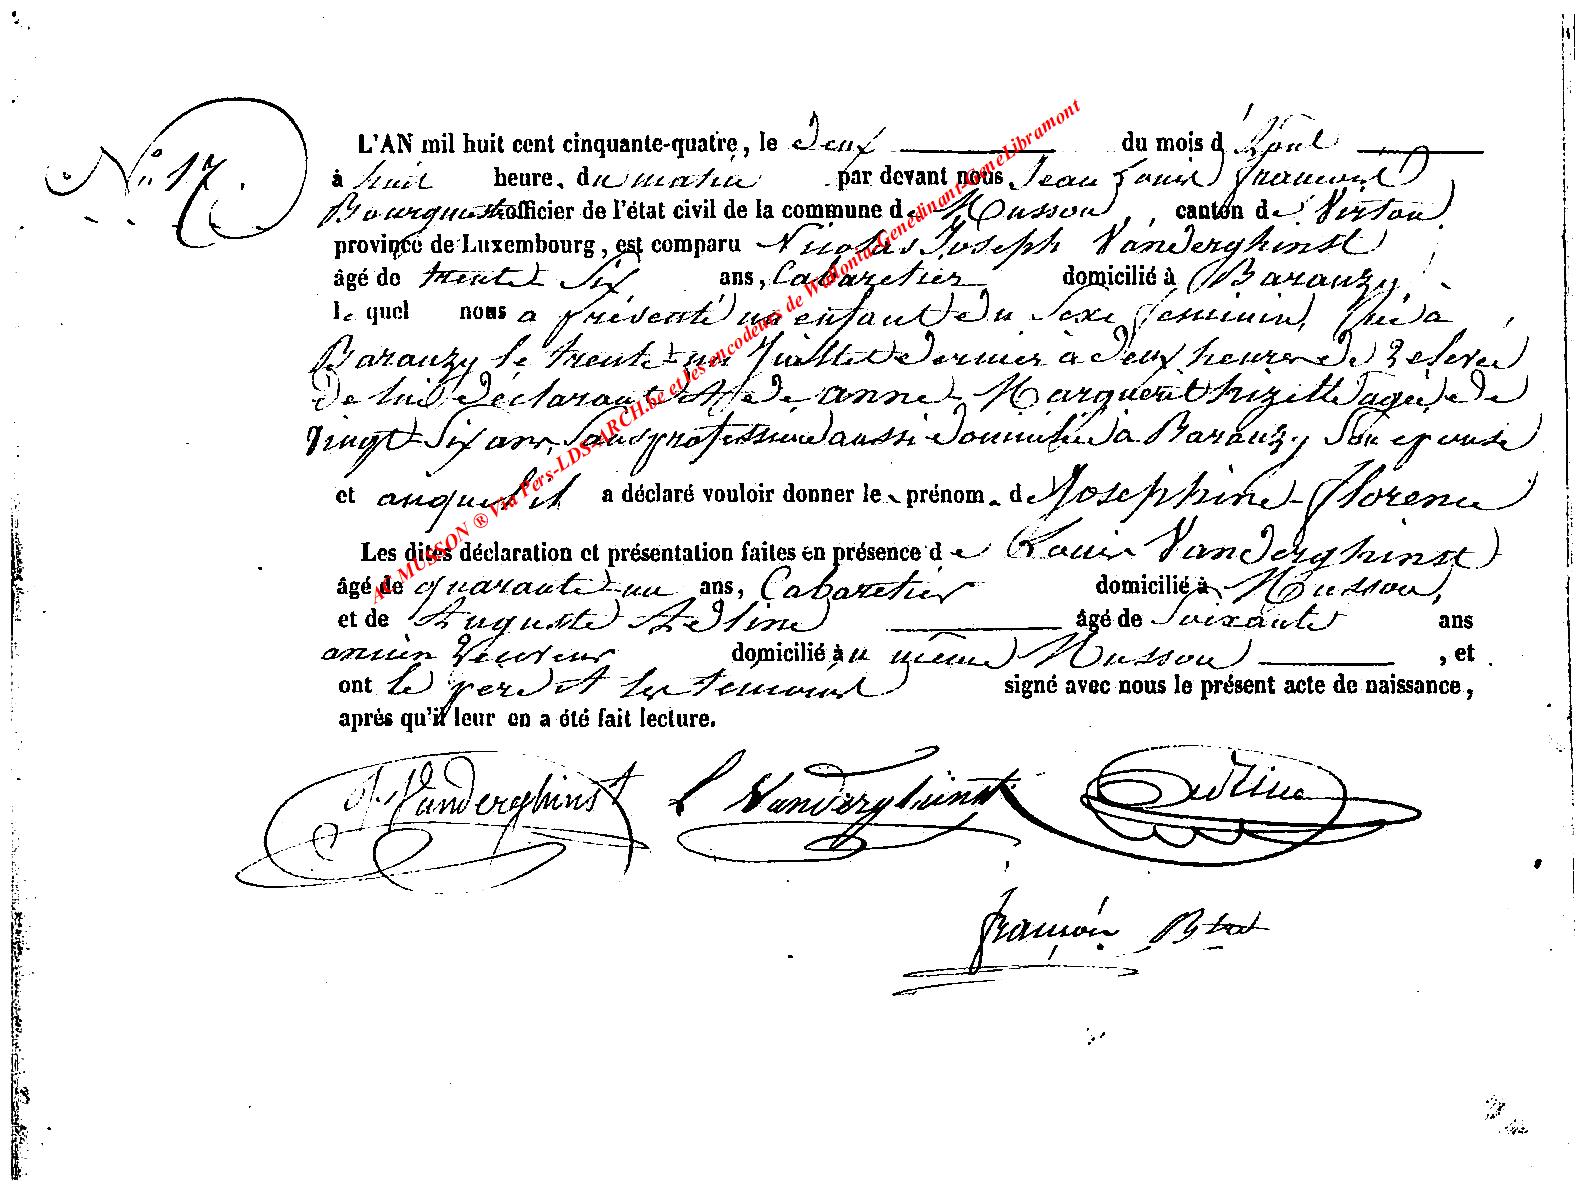 N° 17.
L'AN mil huit cent cinquante-quatre, le deux du mois d'Août
à huit heure. du matin par devant nous Jean Louis François
Bourguemestre officier de l'état civil de la commune de Musson, canton de Virton
province de Luxembourg, est comparu Nicolas Joseph Vanderghinst
âgé de trente six ans, Cabaretier domicilié à Baranzy
le quel nous a présenté un enfant du sexe feminin, Né à
Baranzy le trente-un Juillet dernier à deux heures de relevée
de lui déclarant et de anne Marguerit hizette agée de
Vingt-Six ans, Sans profession aussi domiciliée à Baranzy Son epouse
et auquel il a déclaré vouloir donner le prénom. de Josephine-Florence
Les dites déclaration et présentation faites en présence de Louis Vanderghinst
âgé de quarante-un ans, Cabaretier domicilié à Musson,
et de Auguste âgé de Soixante ans
ancien domicilié au même Musson , et
ont le pere et les temoins signé avec nous le présent acte de naissance,
après qu'il leur en a été fait lecture.
Vanderghinst L Vanderghinst
A MUSSON ® Via Pers-LDS-ARCH.be et les encodeurs de Wallonia-Genedinant-GeneLibramont